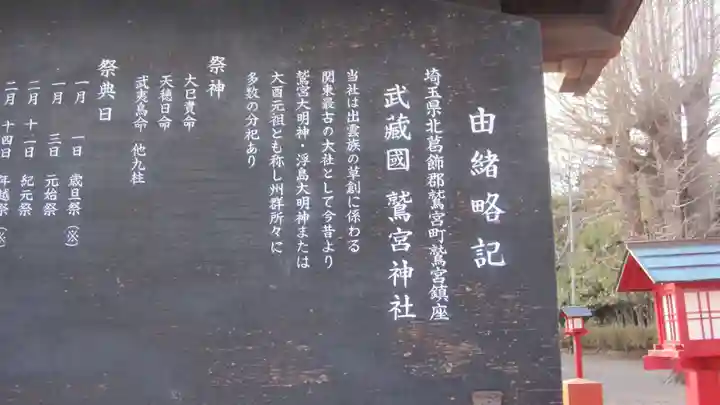 由緒略記
埼玉県北葛飾郡鷲宮町鷲宮鎮座
武蔵國 鷲宮神社
当社は出雲族の草創に係わる
関東最古の大社として今昔より
鷲宮大明神・浮島大明神または
大酉元祖とも称し州群所々に
多数の分祀あり
祭神
大己貴命
天穂日命
武夷鳥命 他九柱
祭典日
一月 一日 歳旦祭(※)
一月 三日 元始祭
二月 十一日 紀元祭
二月 十四日 年越祭(※)